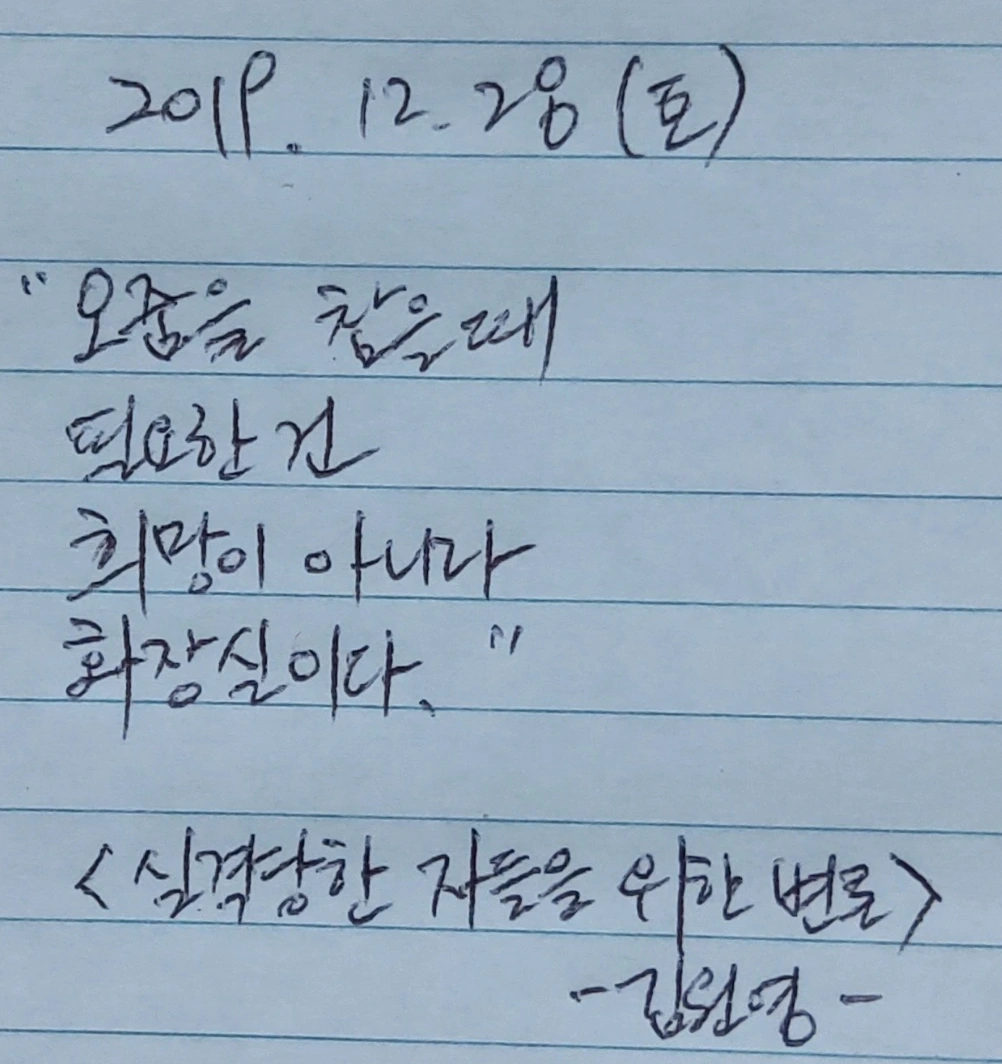 2019. 12. 28 (토)
"오줌을 참을때
필요한 건
희망이 아니라
화장실이다."
<실격당한 자들을 위한 변론>
-김원영-